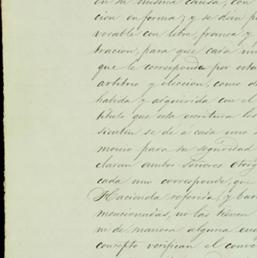 en su misma causa, con
cion en forma; y se dan p
vocable con libre, franca y
tracion, para que cada u
que le corresponde por esta
arbitrio y eleccion, como d
habida y adquirida con el
titulo que esta escritura le
sientin se dé a cada uno
monio para su seguridad
claran ambos Señores otorg
cada uno corresponde, que
Hacienda referida, y ba
mencionadas, no las tienen
ni de manera alguna
concepto verifican el conv